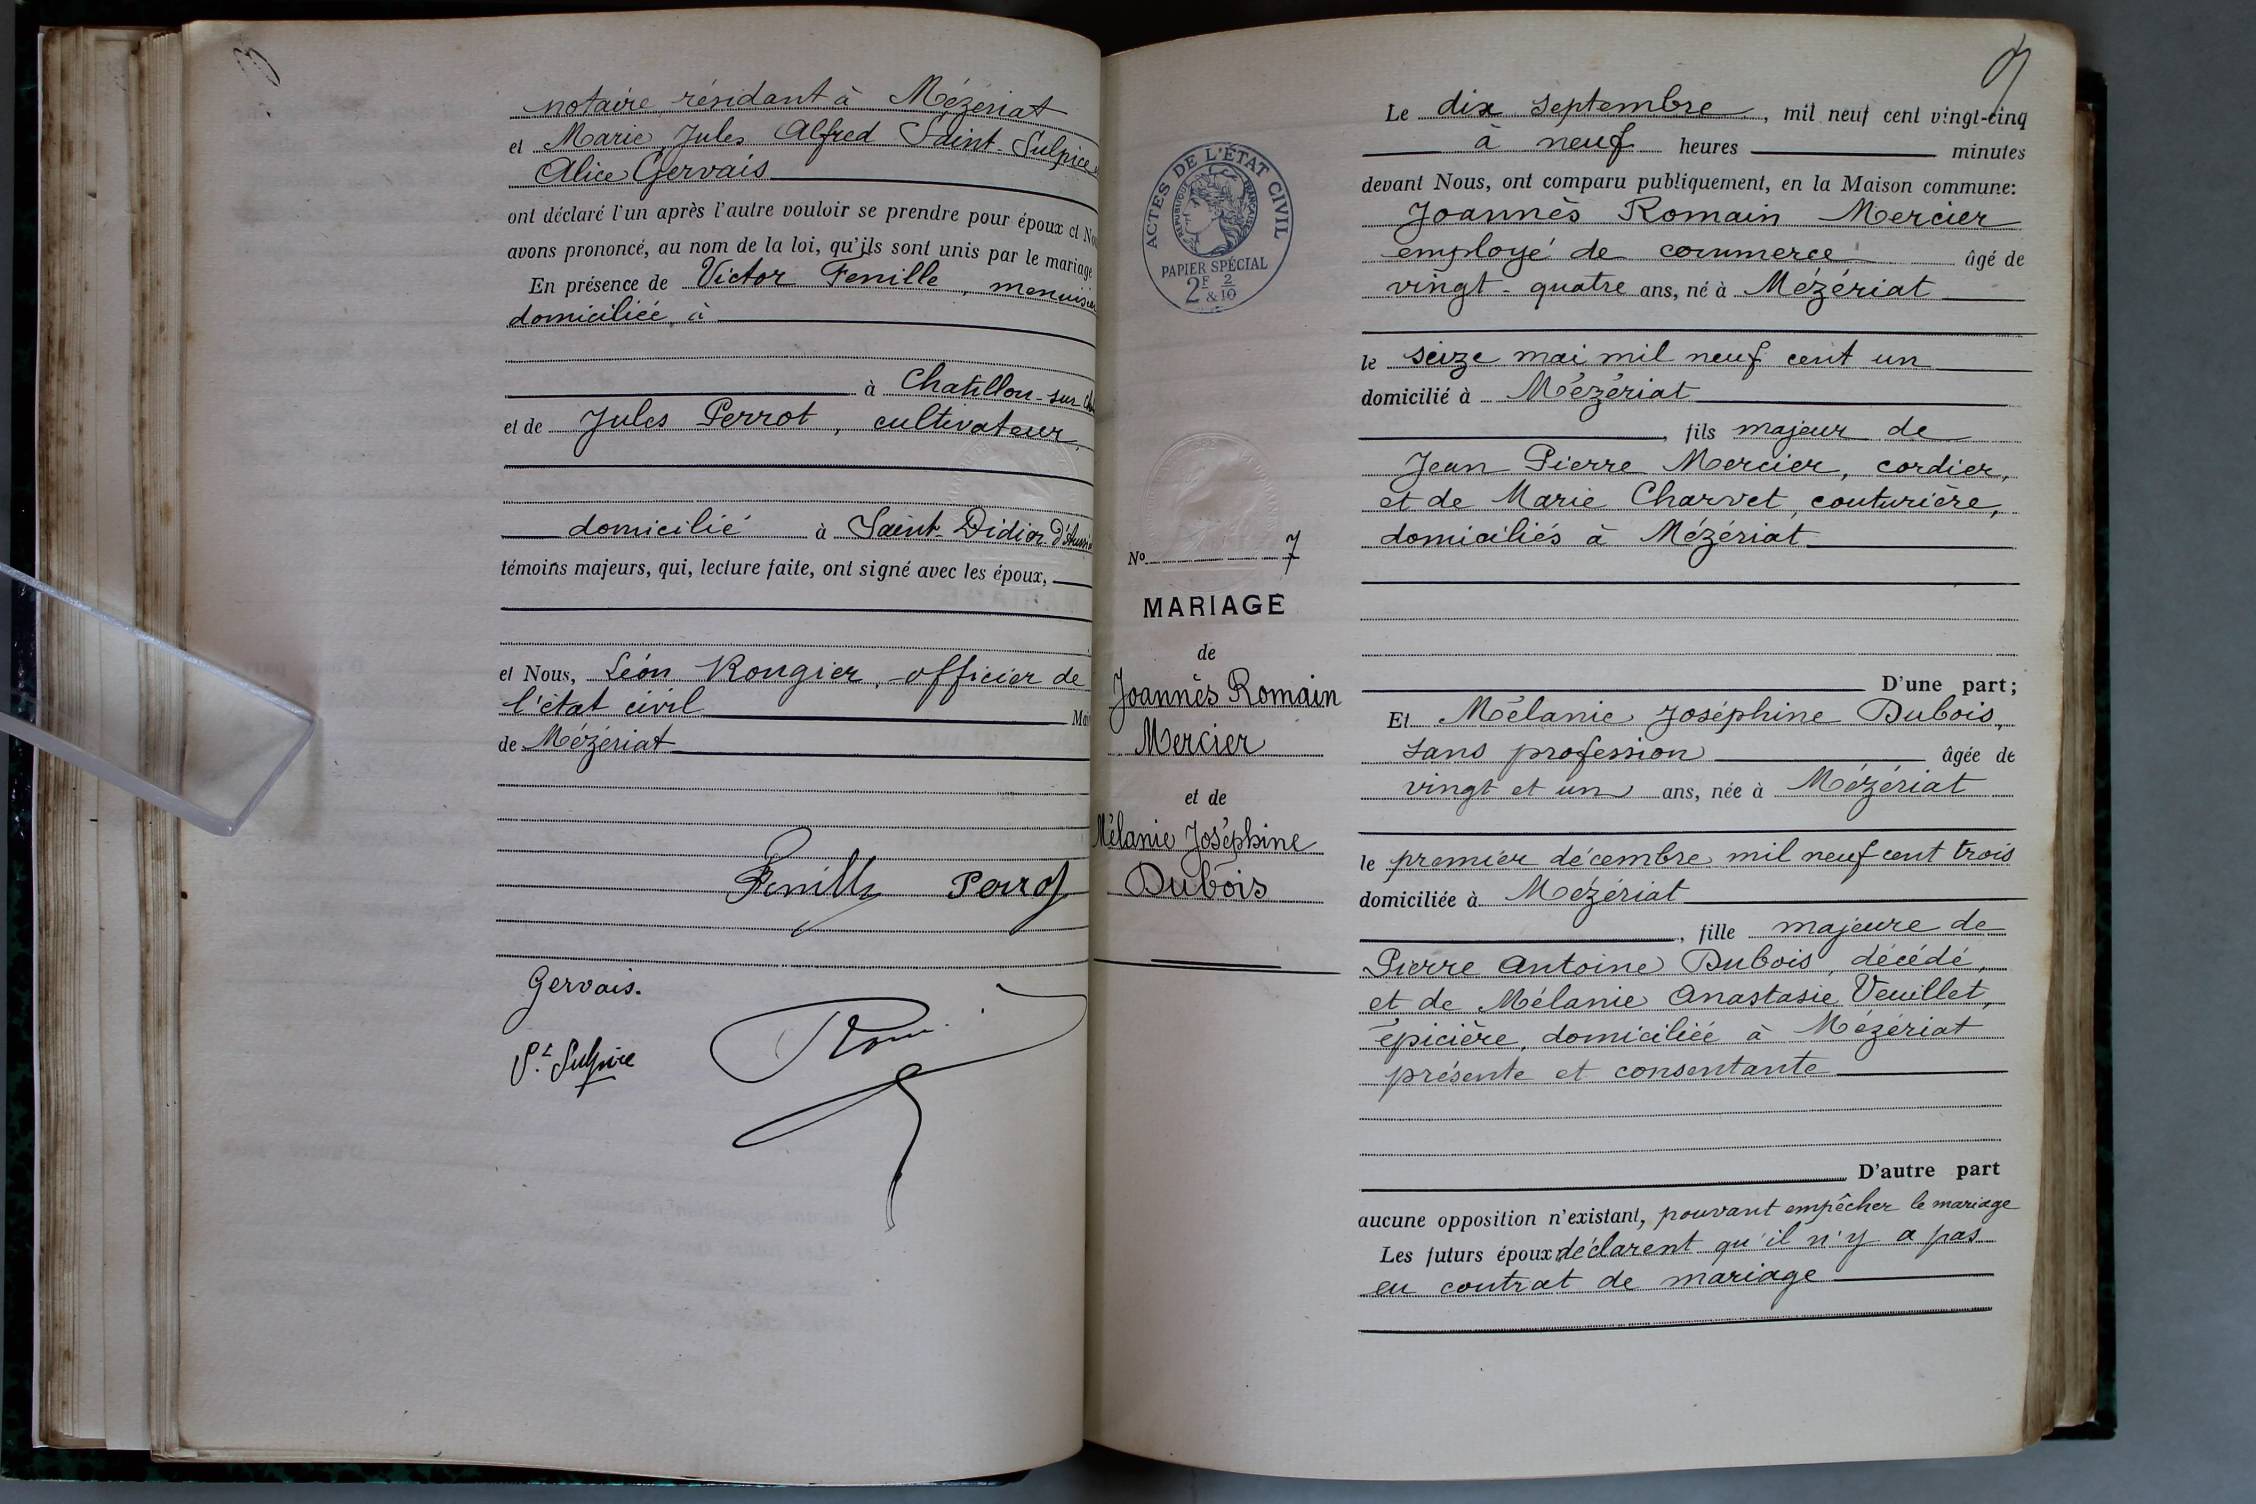 notaire résidant à Mézériat
et Marie Jules Alfred Saint-Sulpice
Alice Gervais
ont déclaré l'un après l'autre vouloir se prendre pour époux et No
avons prononcé, au nom de la loi, qu'ils sont unis par le mariage
En présence de Victor Fenille, menuisie
domiciliée à
à Chatillon-sur Ch
et de Jules Perrot, cultivateur,
domicilié à Saint-Didier d'Auss
témoins majeurs, qui, lecture faite, ont signé avec les époux,
et Nous, Léon Rongier, officier de
l'état civil Mai
de Mézériat
Fenille Perrot
Gervais.
St. Sulpice
ACTES DE L'ÉTAT CIVIL
RÉPUBLIQUE FRANÇAISE
PAPIER SPÉCIAL
2F & 2/10
No 7
MARIAGE
de
Joannès Romain
Mercier
et de
Mélanie Joséphine
Dubois
Le dix septembre, mil neuf cent vingt-cinq
à neuf heures minutes
devant Nous, ont comparu publiquement, en la Maison commune:
Joannès Romain Mercier
employé de commerce âgé de
vingt-quatre ans, né à Mézériat
le seize mai mil neuf cent un
domicilié à Mézériat
, fils majeur de
Jean Pierre Mercier, cordier,
et de Marie Charvet, couturière,
domiciliés à Mézériat
D'une part;
Et Mélanie Joséphine Dubois,
sans profession âgée de
vingt et un ans, née à Mézériat
le premier décembre mil neuf cent trois
domiciliée à Mézériat
, fille majeure de
Pierre Antoine Dubois, décédé,
et de Mélanie Anastasie Veuillet,
épicière, domiciliée à Mézériat
présente et consentante
D'autre part
aucune opposition n'existant, pouvant empêcher le mariage
Les futurs époux déclarent qu'il n'y a pas
eu contrat de mariage